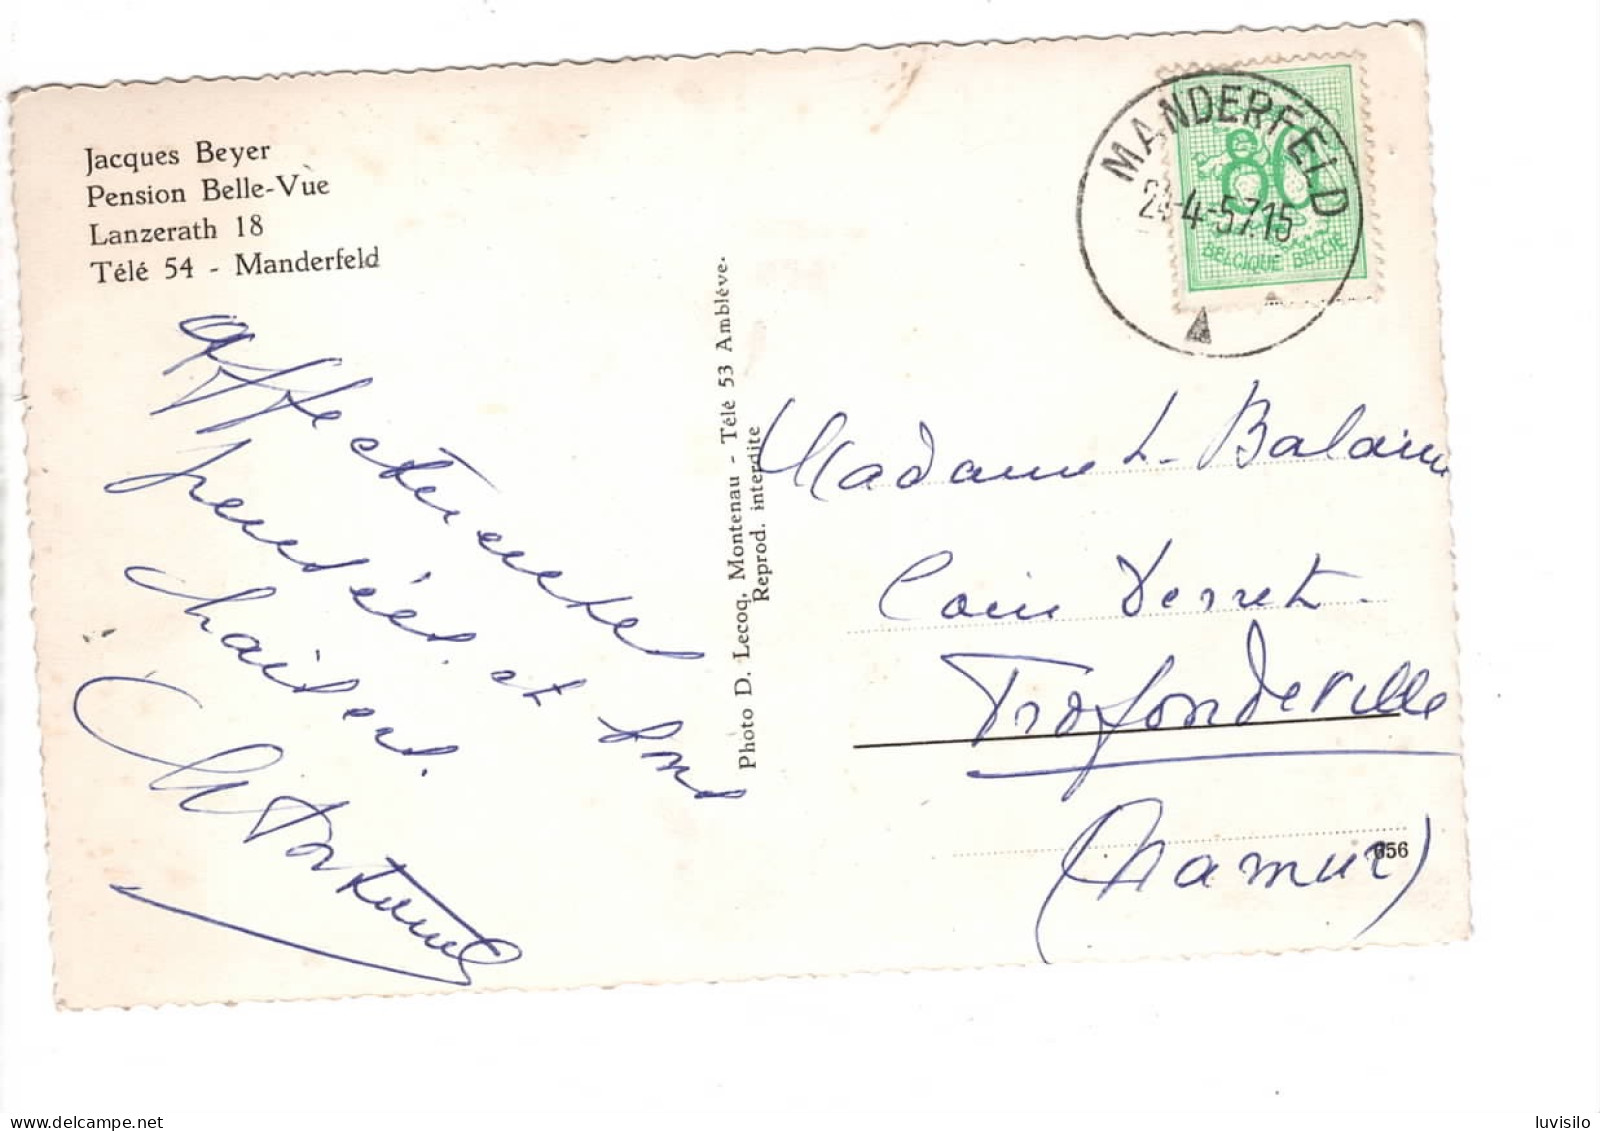 Jacques Beyer
Pension Belle-Vue
Lanzerath 18
Télé 54 - Manderfeld
affectueuses
pensées et bons
baisers.
Photo D. Lecoq, Montenau - Télé 53 Amblève.
Reprod. interdite
MANDERFELD
-4-57.15
80
BELGIQUE BELGIË
Madame L. 
Profondeville
(Namur)
656
delcampe.net
luvisilo